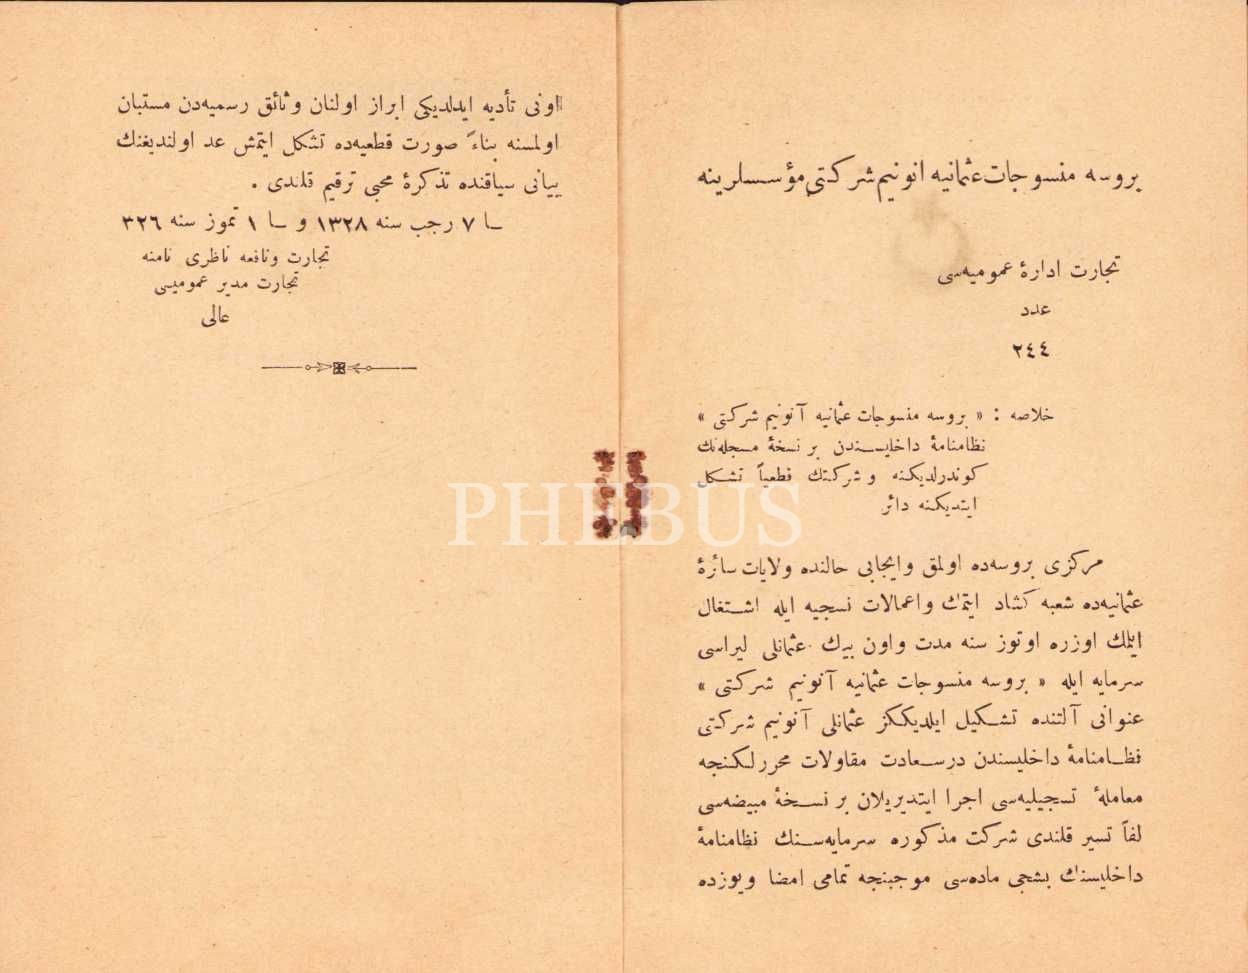 بروسه منسوجات عثمانیه انونیم شرکتی مؤسسلرینه
تجارت ادارۀ عمومیه‌سی
عدد
٢٤٤
خلاصه : « بروسه منسوجات عثمانیه آنونیم شرکتی »
نظامنامۀ داخلیسندن بر نسخۀ مسجله‌نك
کوندرلدیکنه و شرکتك قطعیاً تشکل
ایتدیکنه دائر
مرکزی بروسه‌ده اولمق وایجابی حالنده ولایات سائرۀ
عثمانیه‌ده شعبه کشاد ایتمك واعمالات نسجیه ایله اشتغال
ایلمك اوزره اوتوز سنه مدت واون بیك عثمانلی لیراسی
سرمایه ایله « بروسه منسوجات عثمانیه آنونیم شرکتی »
عنوانی آلتنده تشکیل ایلدیککز عثمانلی آنونیم شرکتی
نظامنامۀ داخلیسندن درسعادت مقاولات محررلکنجه
معاملۀ تسجیلیه‌سی اجرا ایتدیریلان بر نسخۀ مبیضه‌سی
لفاً تسییر قلندی شرکت مذکوره سرمایه‌سنك نظامنامۀ
داخلیسنك بشنجی ماده‌سی موجبنجه تمامی امضا ویوزده
اونی تأدیه ایدلدیکی ابراز اولنان وثائق رسمیه‌دن مستبان
اولمسنه بناءً صورت قطعیه‌ده تشکل ایتمش عد اولندیغنك
بیانی سیاقنده تذکرۀ محبی ترقیم قلندی .
٧ رجب سنه ١٣٢٨ و ١ تموز سنه ٣٢٦
تجارت ونافعه ناظری نامنه
تجارت مدیر عمومیسی
عالی
PHEBUS